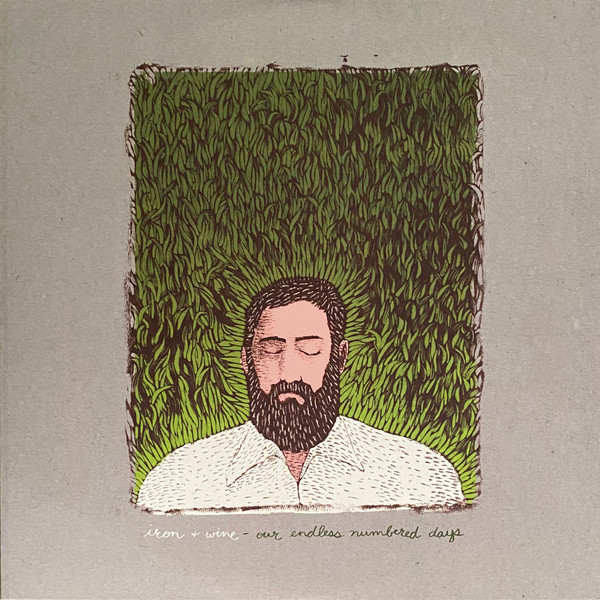 iron + wine - our endless numbered days